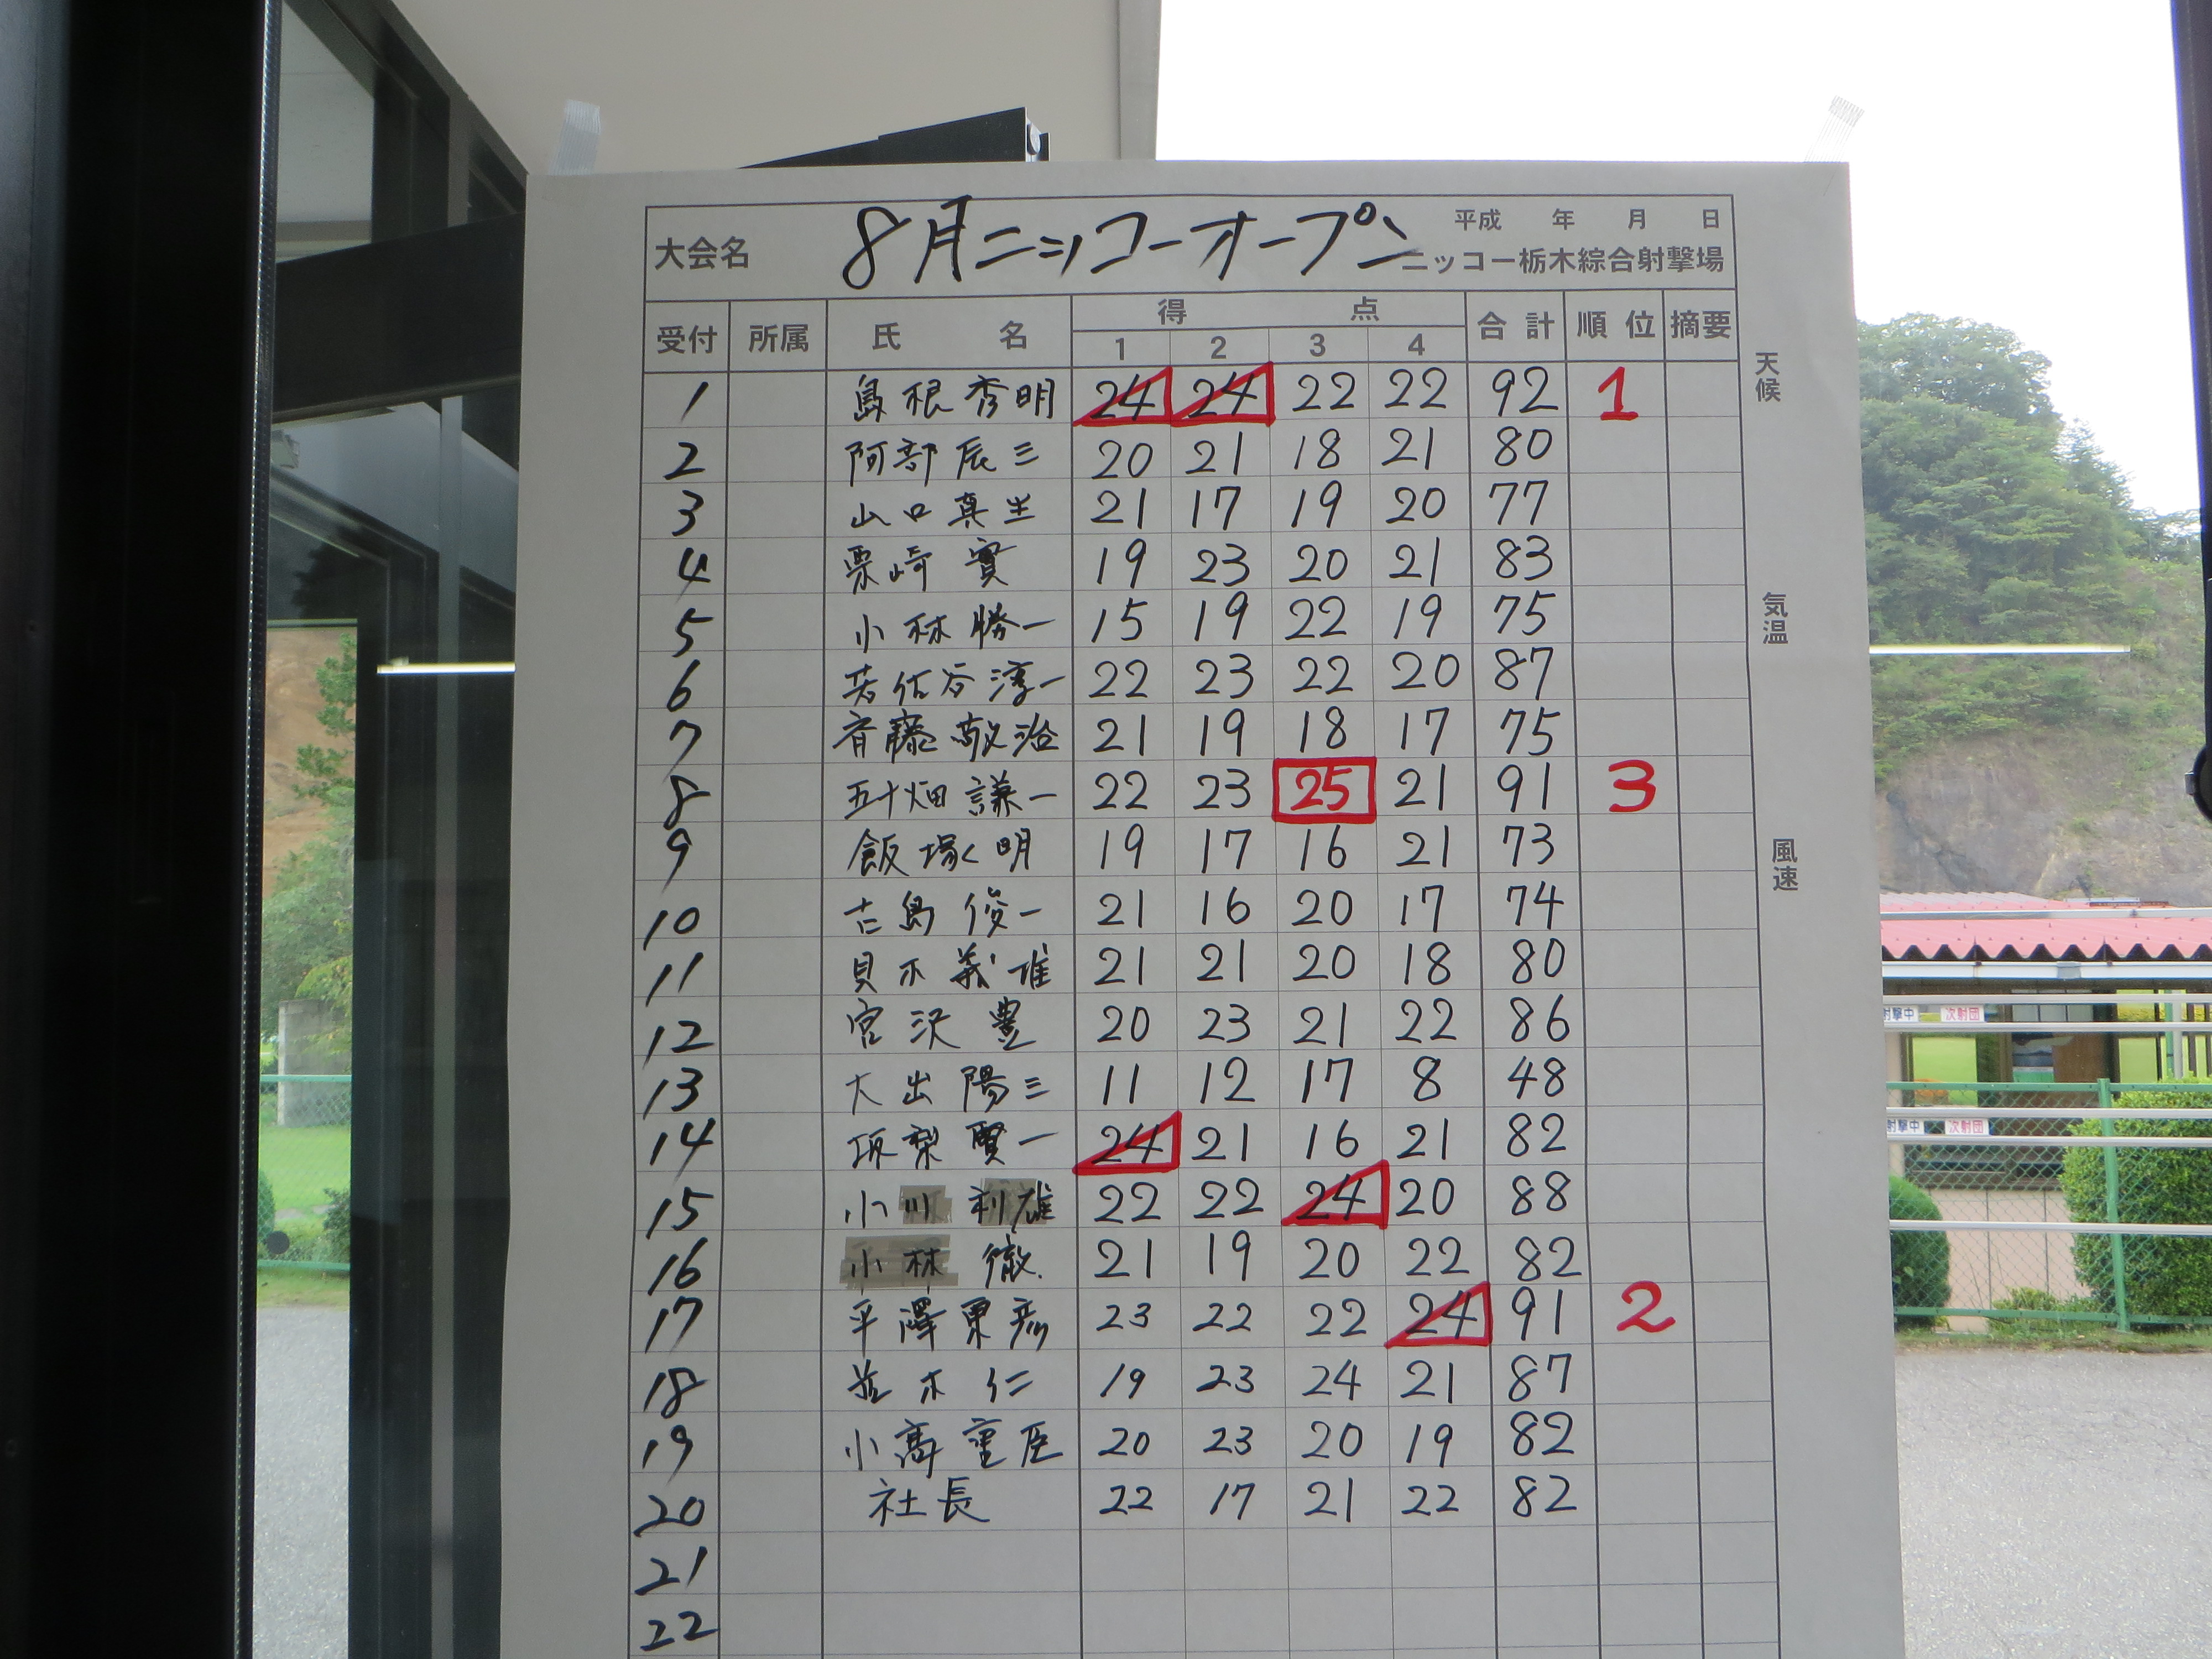 大会名 8月ニッコーオープン 平成 年 月 日
ニッコー栃木綜合射撃場
受付 所属 氏 名 得 点 合計 順位 摘要
1 2 3 4
1 島根秀明 24 24 22 22 92 1
2 阿部辰三 20 21 18 21 80
3 山口真生 21 17 19 20 77
4 栗崎實 19 23 20 21 83
5 小林勝一 15 19 22 19 75
6 若佐谷淳一 22 23 22 20 87
7 斉藤敬治 21 19 18 17 75
8 五十畑謙一 22 23 25 21 91 3
9 飯塚明 19 17 16 21 73
10 古島俊一 21 16 20 17 74
11 貝木義雄 21 21 20 18 80
12 宮沢豊 20 23 21 22 86
13 大出陽三 11 12 17 8 48
14 坂梨賢一 24 21 16 21 82
15 小川利雄 22 22 24 20 88
16 小林徹 21 19 20 22 82
17 平澤 23 22 22 24 91 2
18 並木仁 19 23 24 21 87
19 小高重臣 20 23 20 19 82
20 社長 22 17 21 22 82
21
22
天候
気温
風速
射撃中 次射団
射撃中 次射団